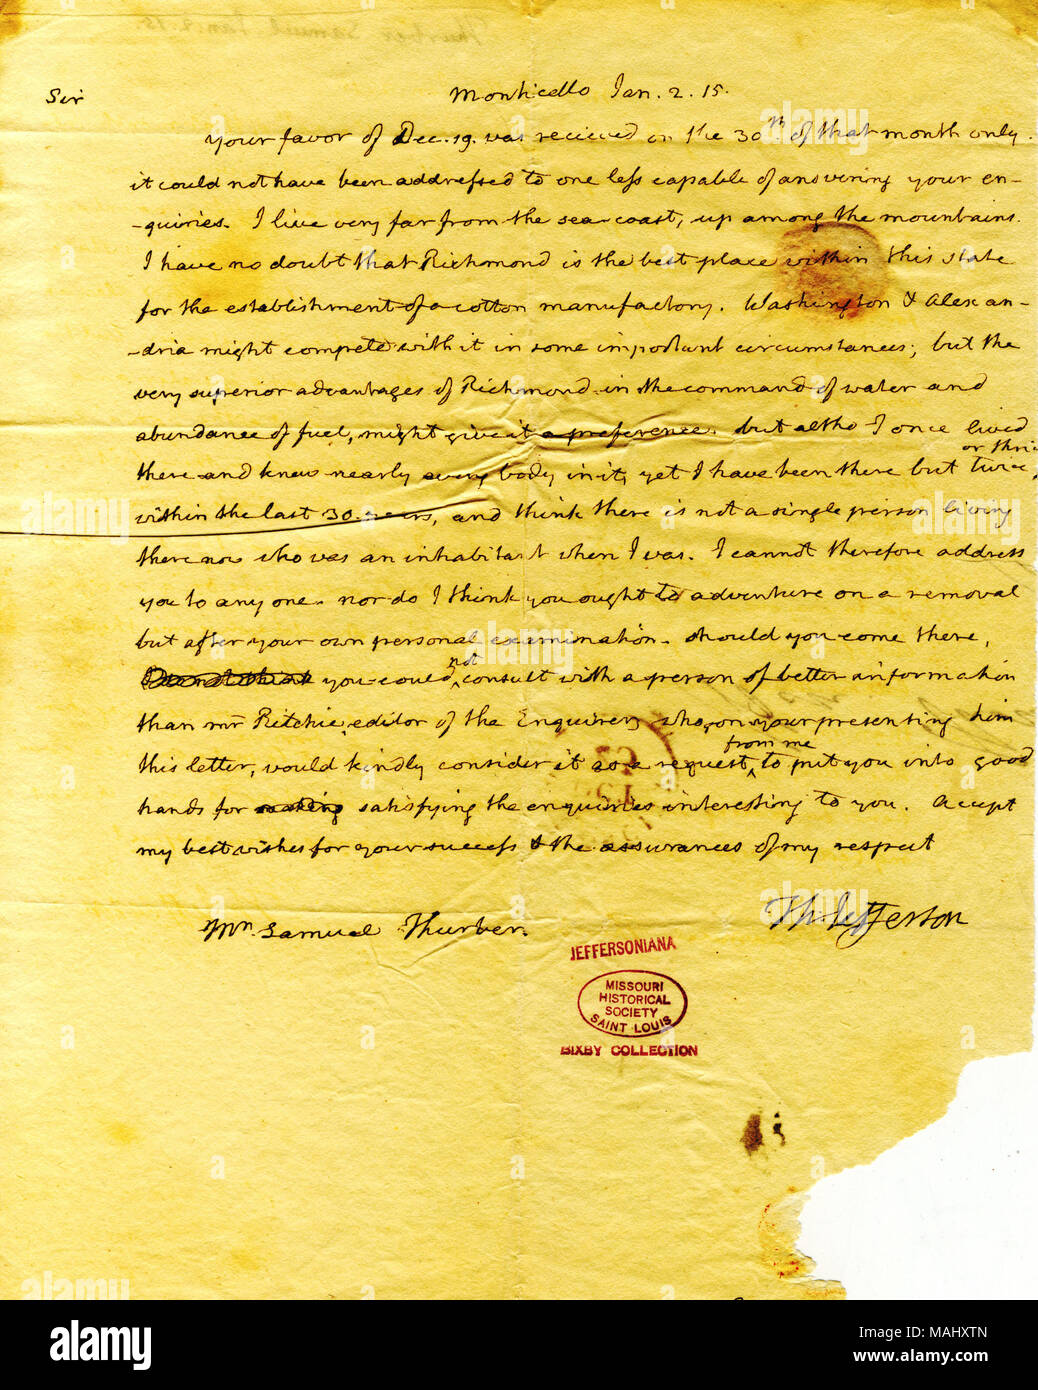 Thurber Samuel Jan. 2. 15.
Monticello Jan. 2. 15.
Sir
Your favor of Dec. 19. was recieved on the 30th of that month only.
it could not have been addressed to one less capable of answering your en-
-quiries. I live very far from the sea-coast, up among the mountains.
I have no doubt that Richmond is the best place within this state
for the establishment of a cotton manufactory. Washington & Alexan-
-dria might compete with it in some important circumstances; but the
very superior advantages of Richmond in the command of water and
abundance of fuel, might give it a preference. but altho' I once lived
there and knew nearly every body in it, yet I have been there but twice or thri
within the last 30. years, and think there is not a single person living
there now who was an inhabitant when I was. I cannot therefore address
you to any one. nor do I think you ought to adventure on a removal
but after your own personal examination. should you come there,
you could not consult with a person of better information
than mr Ritchie, editor of the Enquirer, who, on your presenting him
this letter, would kindly consider it as a request from me to put you into good
hands for making satisfying the enquiries interesting to you. Accept
my best wishes for your success & the assurances of my respect
Th: Jefferson
Mr. Samuel Thurber.
JEFFERSONIANA
MISSOURI
HISTORICAL
SOCIETY
SAINT LOUIS
BIXBY COLLECTION
alamy
Image ID: MAHXTN
www.alamy.com